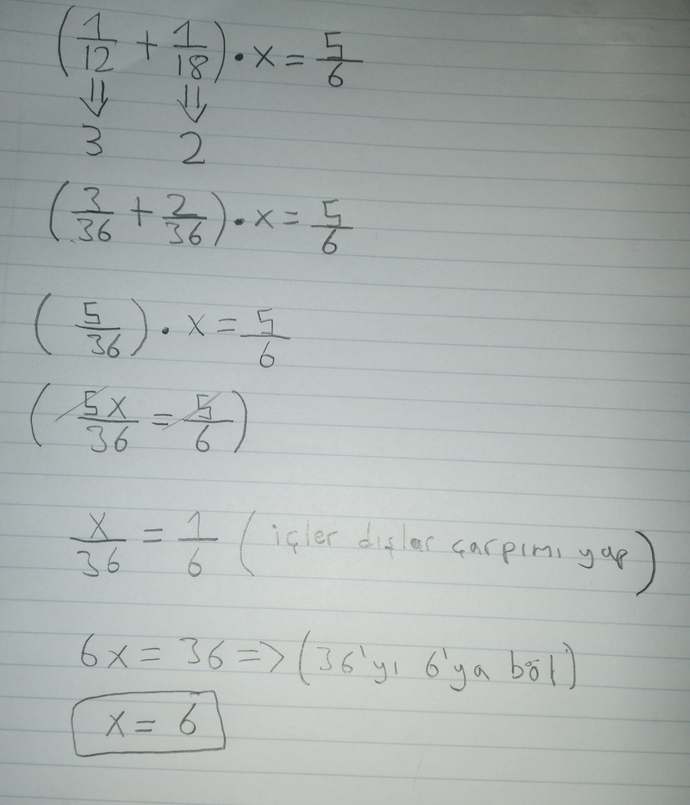 (1/12 + 1/18) • x = 5/6
⇓ ⇓
3 2
(3/36 + 2/36) • x = 5/6
(5/36) • x = 5/6
(5x/36 = 5/6)
x/36 = 1/6 (içler dışlar çarpımı yap)
6x = 36 => (36'yı 6'ya böl)
x = 6